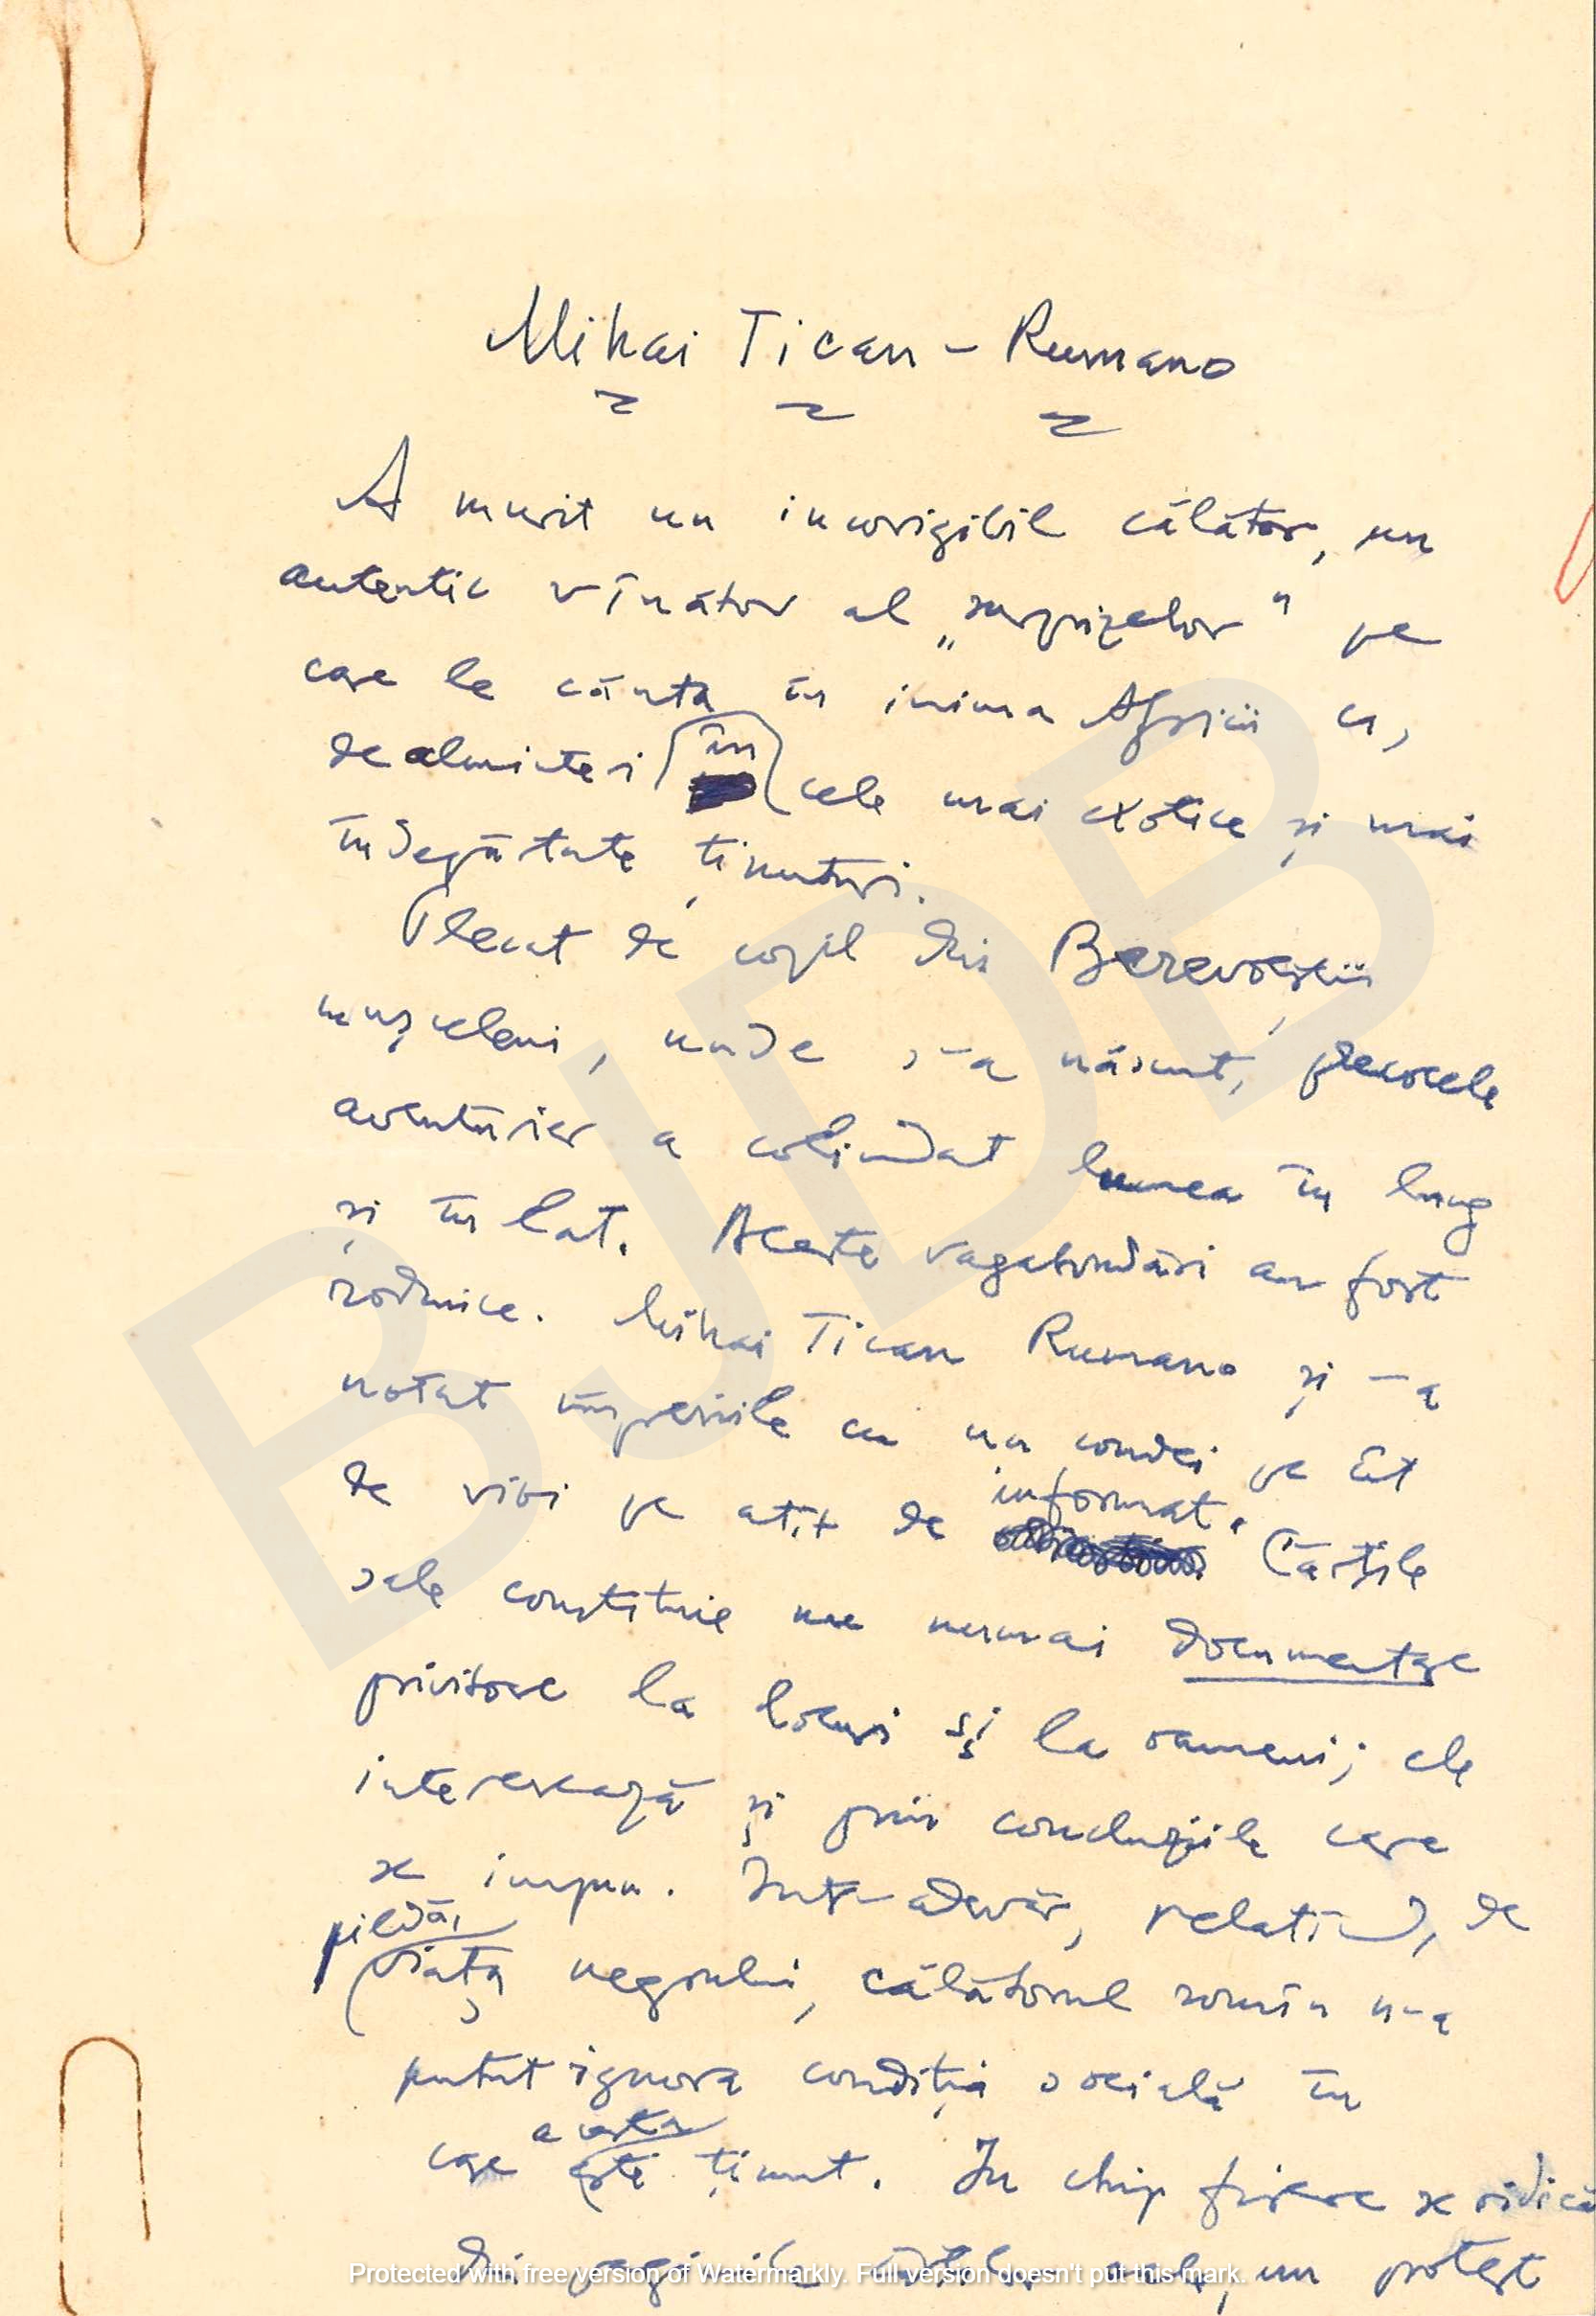 Mihai Tican - Rumano
A murit un incorigibil călător, un
autentic vînător al „surprizelor" pe
care le căuta în inima Africii ca,
dealminteri în cele mai exotice și mai
îndepărtate ținuturi.
Plecat de copil din Berevoeștii
mușceleni, unde s-a născut, precocele
aventurier a colindat lumea în lung
și în lat. Aceste vagabondări au fost
rodnice. Mihai Tican Rumano și-a
notat impresiile cu un condei pe cît
de vioi pe atît de informat. Cărțile
sale constituie nu numai documentare
privitoare la locuri și la oameni; ele
interesează și prin concluziile care
se impun. Într-adevăr, relatînd, de
pildă, viața negrului, călătorul romîn n-a
putut ignora condiția socială în
care acesta este ținut. In chip firesc se ridică
din paginile cărților sale, un protest
BJDB
Protected with free version of Watermarkly. Full version doesn't put this mark.